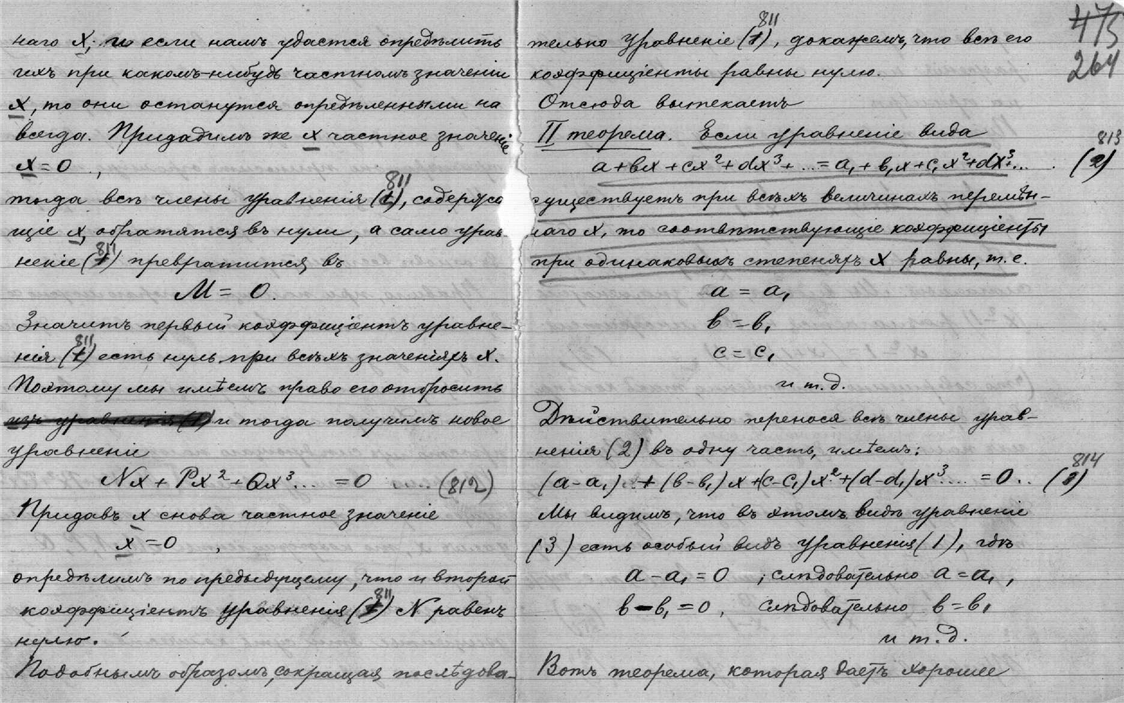 наго x; и если намъ удастся опредѣлить
ихъ при какомъ-нибудь частномъ значеніи
x, то они останутся опредѣленными на
всегда. Придадимъ же x частное значеніе
x = 0 .,
тогда всѣ члены уравненія (811), содержа
щіе x, обратятся въ нули, а само урав
неніе (811) превратится въ
M = 0.
Значитъ первый коэффиціентъ уравне-
нія (811) есть нуль при всѣхъ значеніяхъ x.
Поэтому мы имѣемъ право его отбросить
изъ уравненія (1) и тогда получимъ новое
уравненіе
Nx + Px² + Qx³... = 0 (812)
Придавъ x снова частное значеніе
x = 0 ,
опредѣлимъ по предыдущему, что и второй
коэффиціентъ уравненія (811) N равенъ
нулю.
Подобнымъ образомъ, сокращая послѣдова-
475
264
тельно уравненіе (811), докажемъ, что всѣ его
коэффиціенты равны нулю.
Отсюда вытекаетъ
II теорема. Если уравненіе вида
a+bx+cx²+dx³+...=a₁+b₁x+c₁x²+dx³... (2) 813
существуетъ при всѣхъ величинахъ перемѣн-
наго x, то соотвѣтствующіе коэффиціенты
при одинаковыхъ степеняхъ x равны, т.е.
a = a₁
b = b₁
c = c₁
и т.д.
Дѣйствительно перенося всѣ члены урав-
ненія (2) въ одну часть, имѣемъ:
(a-a₁)..+(b-b₁)x+(c-c₁)x²+(d-d₁)x³.... = 0.. 814
Мы видимъ, что въ этомъ видѣ уравненіе
(3) есть особый видъ уравненія (1), гдѣ
a-a₁=0 ; слѣдовательно a=a₁,
b-b₁=0, слѣдовательно b=b₁
и т.д.
Вотъ теорема, которая даетъ хорошее